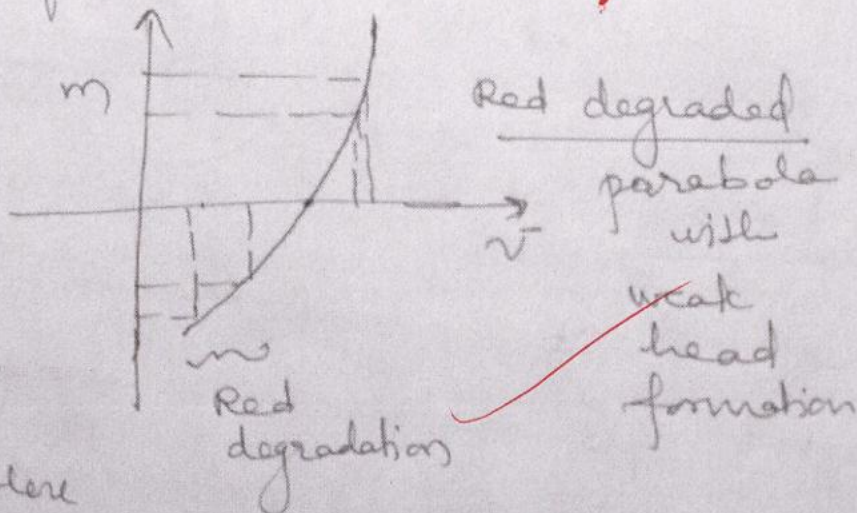 m
Red degraded
parabola
with
weak
head
formation
ν
Red
degradation